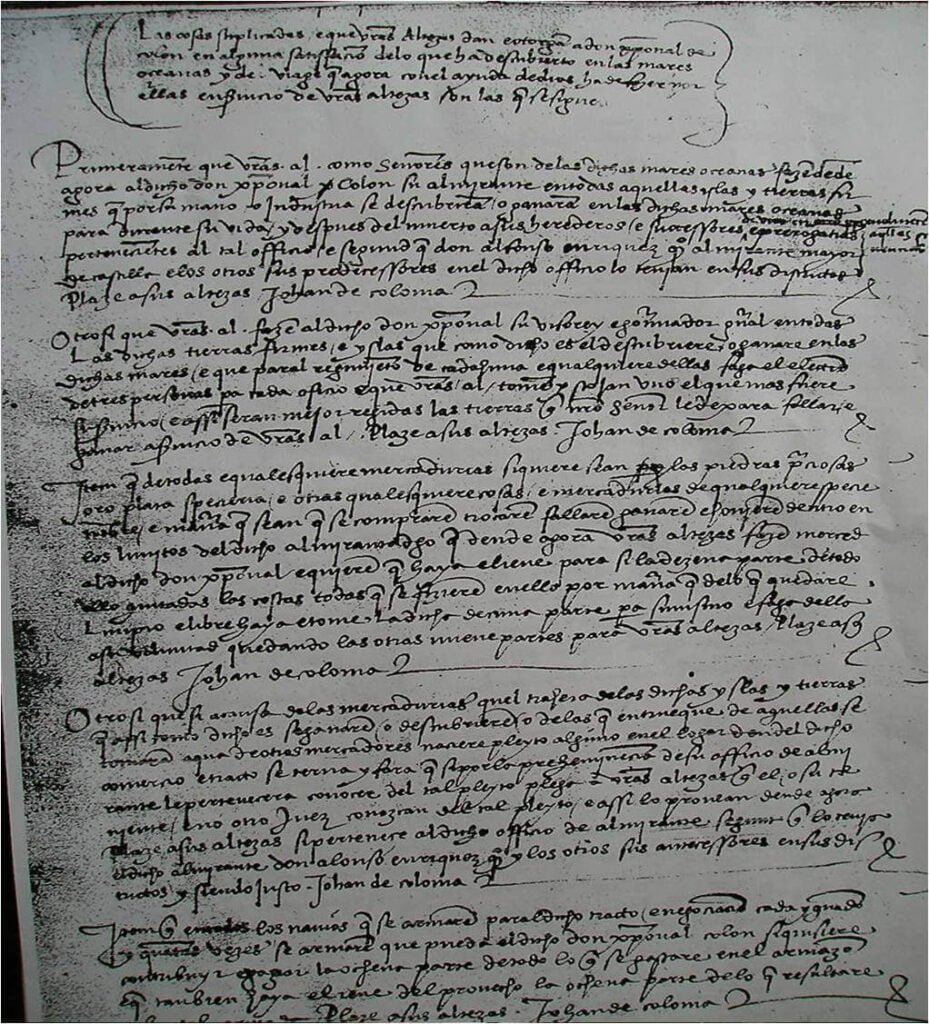 Las cosas suplicadas e que vras Altezas dan e otorgan a don xpoual de
colon en alguna satisfacion delo que ha descubierto en las mares
oceanas y del viage que agora con el ayuda de dios ha de fazer por
ellas en seruicio de vras altezas son las que se siguen
Primeramente que vras al. como Senores que son delas dichas mares oceanas fazen dende
agora al dicho don xpoual Colon su almirante en todas aquellas islas y tierras fir
mes que por su mano o industria se descubriran o ganaran en las dichas mares oceanas
para durante su vida y despues del muerto a sus herederos e sucessores
pertenecientes al tal officio e segund que don alfonso enrriquez almirante mayor
de castilla e los otros sus predecessores enel dicho officio lo tenian en sus districtos
Plaze a sus altezas Johan de coloma
Otrosi que vras al. fazen al dicho don xpoual su visorey e gouernador gnal en todas
Las dichas tierras firmes e yslas que como dicho es el descubriere o ganare en las
dichas mares e que paral regimiento de cada huna e qualquiere dellas faga el electio
de tres personas pa cada oficio e que vras al. tomen y scojan uno el que mas fuere
su seruicio e assi seran mejor regidas las tierras que nro Senor le dexara fallar e
ganar a seruicio de vras al. Plaze a sus altezas Johan de coloma
Item que de todas e qualesquiere mercadurias siquiere sean perlas piedras preciosas
oro plata specieria e otras qualesquiere cosas e mercadurias de qualquiere specie
nombre e manera que sean que se compraren trocaren fallaren ganaren e houieren dentro en
los limites del dicho almirantadgo que dende agora vras altezas fazen merced
al dicho don xpoual e quieren que haya e lieue para si la dezena parte de todo
ello quitadas las costas todas que se fizieren en ello por manera que delo que quedare
limpio e libre haya e tome la dicha decima parte pa si mismo e faga dello
a su voluntad quedando las otras nueue partes para vras altezas Plaze a sus
altezas Johan de coloma
Otrosi que si a causa delas mercadurias quel trahera delas dichas yslas y tierras
que assi como dicho es se ganaren o descubrieren o delas que en trueque de aquellas se
tomaran aqua de otros mercadores naciere pleyto alguno enel logar donde el dicho
comercio e tracto se terna y fara que si por la preheminencia de su officio de almi
rante le pertenecera conocer del tal pleyto plega a vras altezas que el o su te
niente e no otro Juez conozcan del tal pleyto e assi lo prouean dende agora
Plaze a sus altezas si pertenece al dicho officio de almirante segunt que lo tenia
el dicho almirante don alonso enrriquez y los otros sus antecessores en sus dis
trictos y siendo justo Johan de coloma
Item que en todos los nauios que se armaren paral dicho tracto e negociacion cada y quando
y quantas vezes se armaren que pueda el dicho don xpoual colon si quisiere
contribuyr e pagar la ochena parte de todo lo que se gastare enel armazon
e que tanbien haya e lieue del prouecho la ochena parte delo que resultare
Plaze a sus altezas Johan de coloma